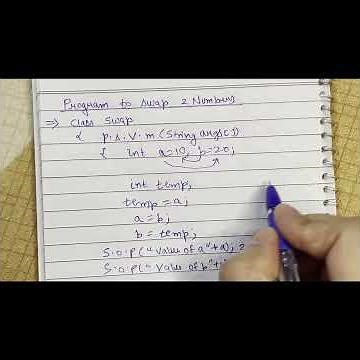 Program to swap 2 Numbers
⇒ class swap
{ p.s.v.m (String args[])
{ int a=10, b=20;
int temp;
temp = a;
a = b;
b = temp;
S.o.p ("value of a"+a);
S.o.p (" value of b"+